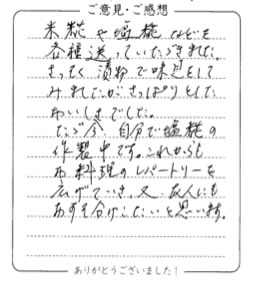 ご意見・ご感想
米糀や塩糀などを
各種送っていただきました。
さっそく漬物で味見をして
みましたがさっぱりとした
おいしさでした。
ただ今、自分で塩糀の
作製中です。これからも
お料理のレパートリーを
広げていき、又、友人にも
おすそ分けしたいと思います。
ありがとうございました!